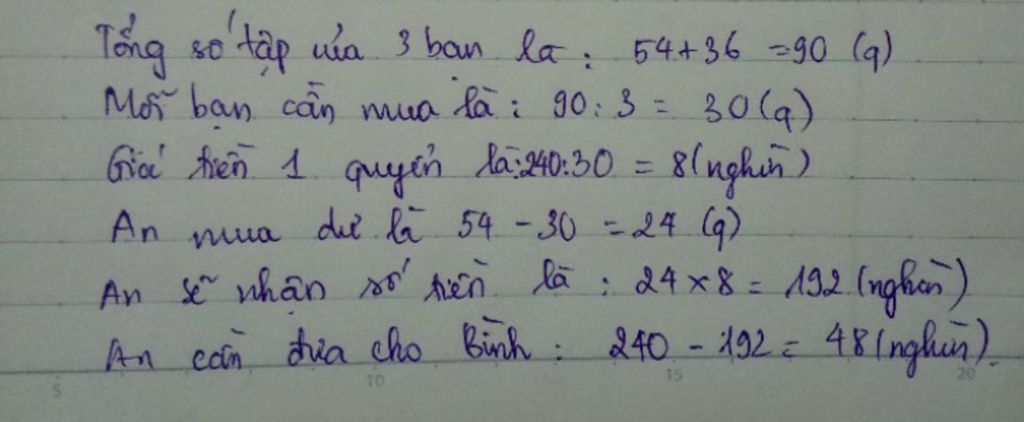 Tổng số tập của 3 bạn là : 54+36 =90 (q)
Mỗi bạn cần mua là : 90 : 3 = 30 (q)
Giá tiền 1 quyển là:240:30 = 8 (nghìn)
An mua dư là 54 - 30 = 24 (q)
An sẽ nhận số tiền là : 24 x 8 = 192 (nghìn)
An cần đưa cho Bình : 240 - 192 = 48 (nghìn).
5 10 15 20